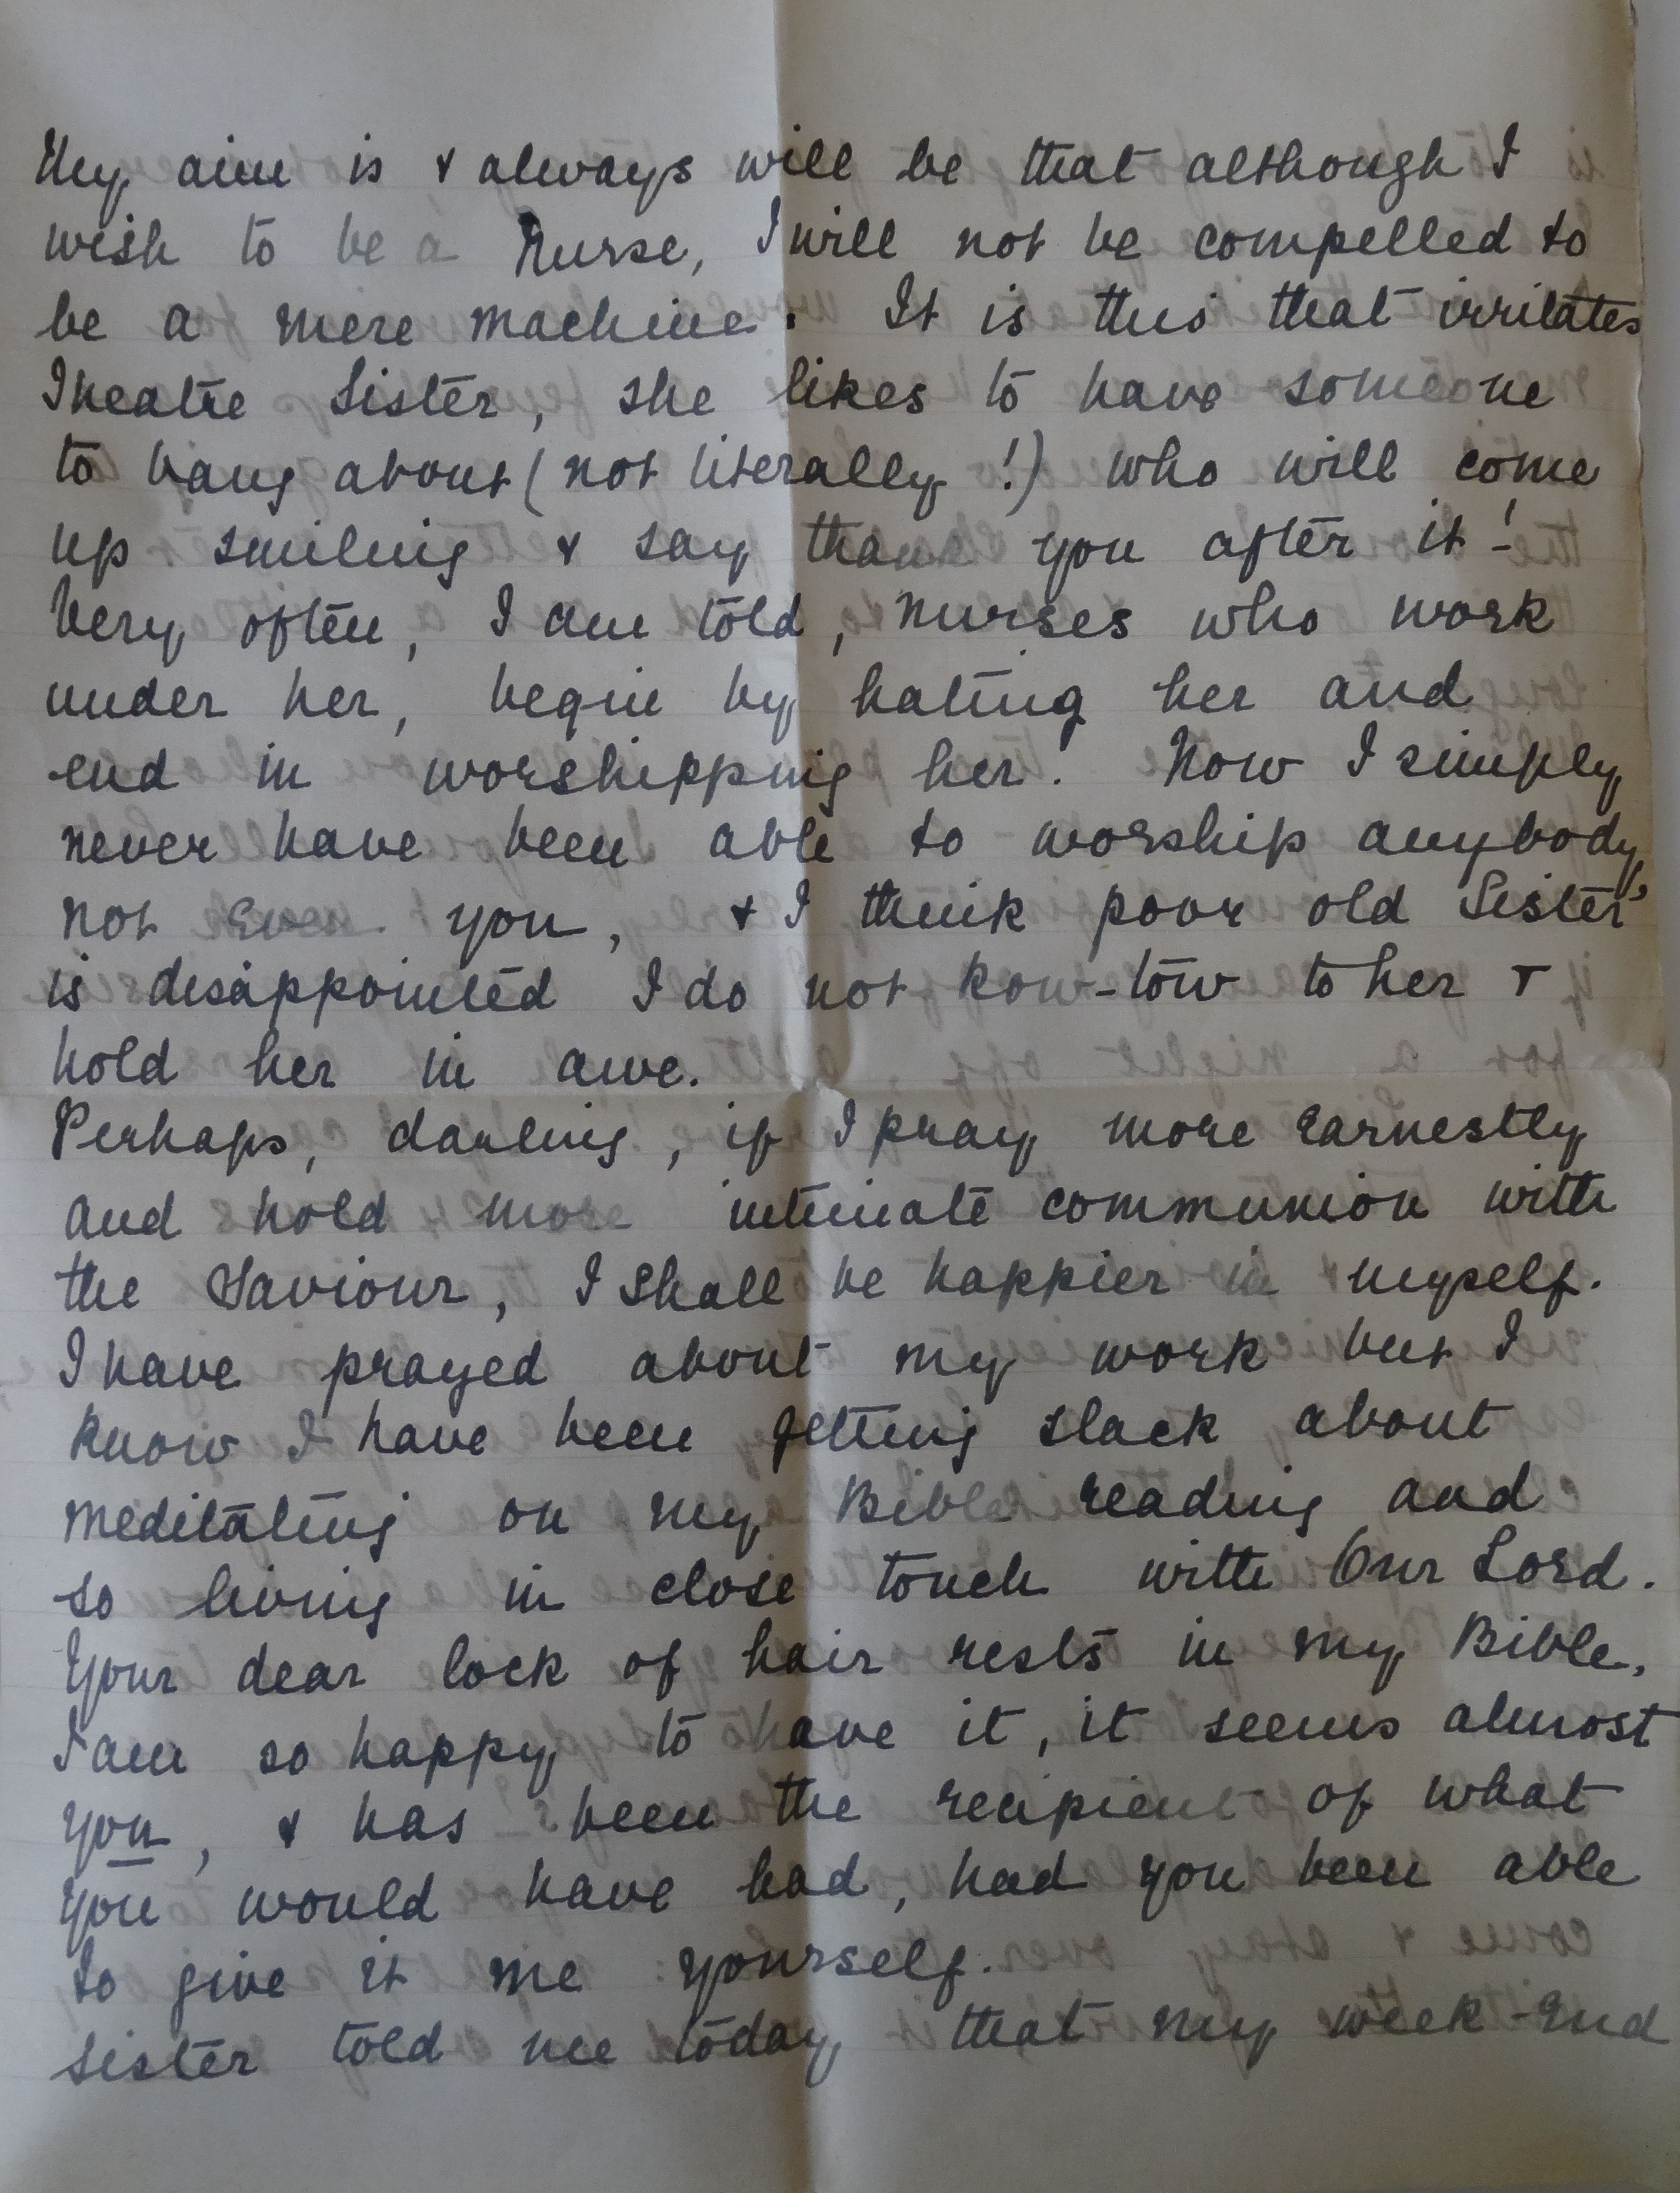 My aim is & always will be that although I
wish to be a Nurse, I will not be compelled to
be a mere machine. It is this that irritates
Theatre Sister, she likes to have someone
to bang about (not literally!) who will come
up smiling & say thank you after it!
Very often, I am told, nurses who work
under her, begin by hating her and
end in worshipping her. Now I simply
never have been able to worship anybody,
not even you, & I think poor old Sister
is disappointed I do not kow-tow to her &
hold her in awe.
Perhaps, darling, if I pray more earnestly
and hold more intimate communion with
the Saviour, I shall be happier in myself.
I have prayed about my work but I
know I have been getting slack about
meditating on my Bible reading and
so living in close touch with Our Lord.
Your dear lock of hair rests in my Bible,
I am so happy to have it, it seems almost
you, & has been the recipient of what
you would have had, had you been able
to give it me yourself.
Sister told me today that my week-end